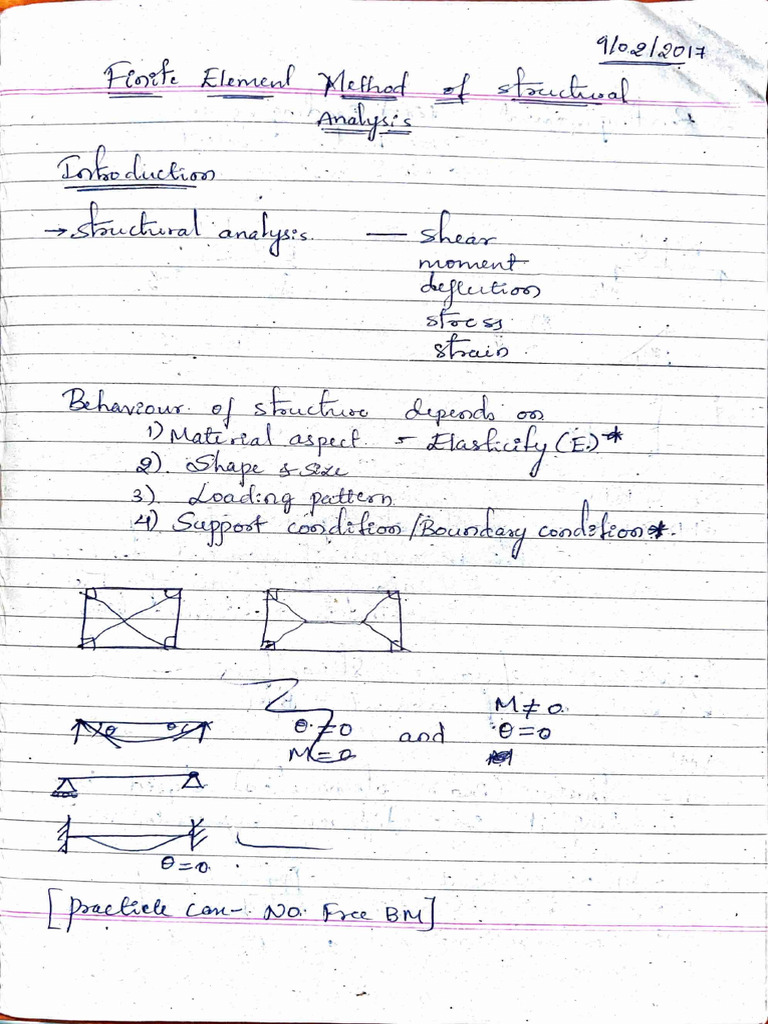 9/02/2017
Finite Element Method of structural
Analysis
Introduction
→ structural analysis — shear
moment
deflection
stress
strain
Behaviour of structure depends on
1) Material aspect - Elasticity (E) *
2) Shape & size
3) Loading pattern
4) Support condition / Boundary condition *.
θ θ
θ ≠ 0 and M ≠ 0
M = 0 θ = 0
θ = 0
[practicle can - No. Free BM]